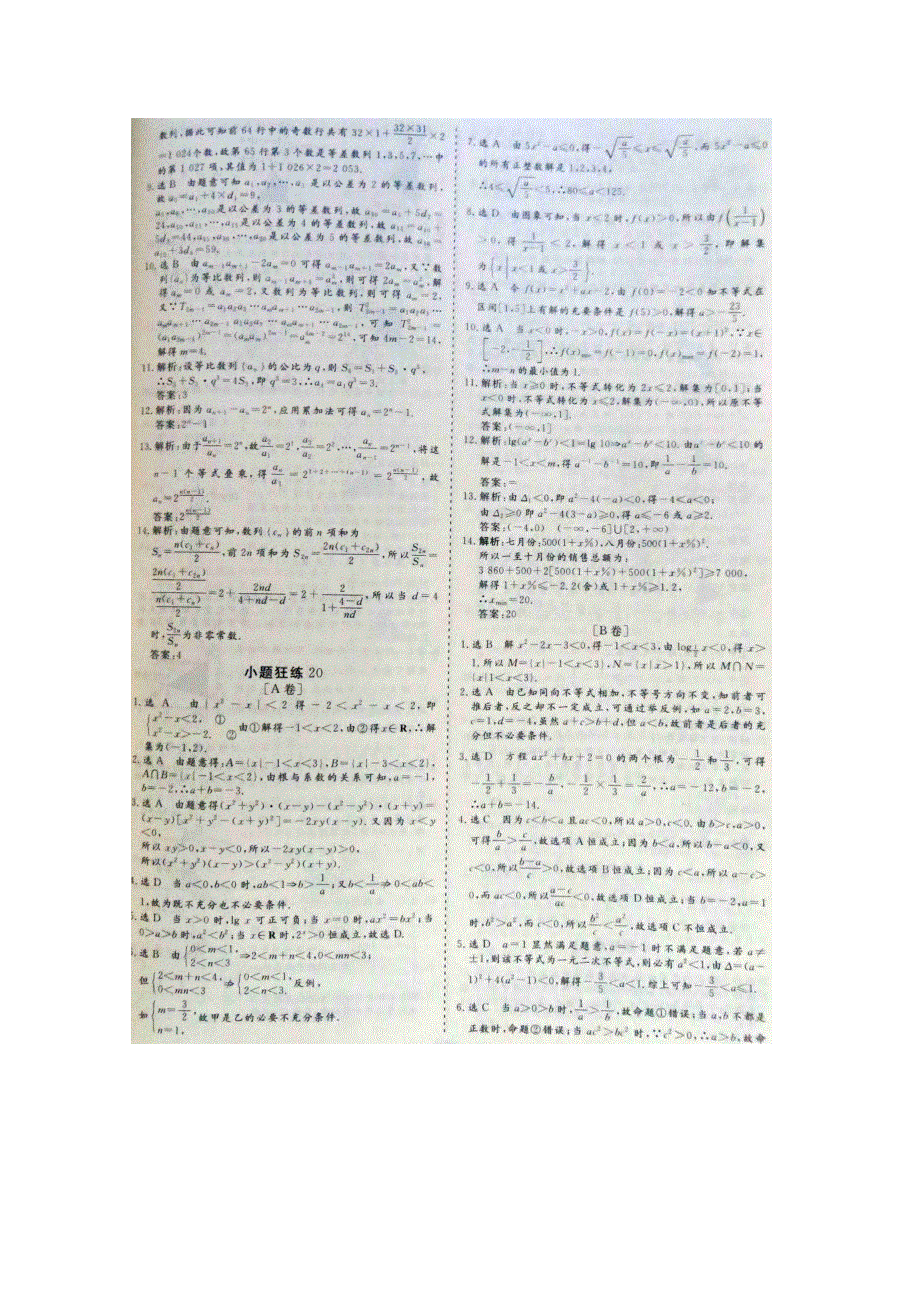 数列,据此可知前64行中的奇数行共有32×1+\frac{32×31}{2}×2
=1 024个数,故第65行第3个数是等差数列1,3,5,7,…中
的第1 027项,其值为1+1 026×2=2 053.
9.选B 由题意可知a₁,a₂,…,a₅是以公差为2的等差数列,
故a₅=a₁+4×d₁=9,
a₅,a₆,…,a₁₀是以公差为3的等差数列,故a₁₀=a₅+5d₂=
24,a₁₀,a₁₁,…,a₁₅是以公差为4的等差数列,故a₁₅=a₁₀+
5d₃=44,a₁₅,a₁₆,…,a₂₀是以公差为5的等差数列,故a₁₈=
a₁₅+3d₄=59.
10.选B 由aₘ₋₁aₘ₊₁-2aₘ=0可得aₘ₋₁aₘ₊₁=2aₘ,又∵数
列{aₙ}为等比数列,则aₘ₋₁aₘ₊₁=aₘ²,则可得2aₘ=aₘ²,解
得aₘ=0或aₘ=2,又数列为等比数列,则可得aₘ=2,
解得m=4.
11.解析:设等比数列{aₙ}的公比为q,则S₆=S₃+S₃·q³,
∴S₃+S₃·q³=4S₃,即q³=3.∴a₄=a₁q³=3.
答案:3
12.解析:因为aₙ₊₁-aₙ=2ⁿ,应用累加法可得aₙ=2ⁿ-1.
答案:2ⁿ-1
13.解析:由于\frac{aₙ₊₁}{aₙ}=2ⁿ,故\frac{a₂}{a₁}=2¹,\frac{a₃}{a₂}=2²,…,\frac{aₙ}{aₙ₋₁}=2ⁿ⁻¹,将这
n-1个等式叠乘,得\frac{aₙ}{a₁}=2^{1+2+…+(n-1)}=2^{\frac{n(n-1)}{2}},故
aₙ=2^{\frac{n(n-1)}{2}}.
答案:2^{\frac{n(n-1)}{2}}
14.解析:由题意可知,数列{cₙ}的前n项和为
Sₙ=\frac{n(c₁+cₙ)}{2},前2n项和为S₂ₙ=\frac{2n(c₁+c₂ₙ)}{2},所以\frac{S₂ₙ}{Sₙ}=
\frac{\frac{2n(c₁+c₂ₙ)}{2}}{\frac{n(c₁+cₙ)}{2}}=2+\frac{2nd}{4+nd-d}=2+\frac{2}{1+\frac{4-d}{nd}},所以当d=4
时,\frac{S₂ₙ}{Sₙ}为非零常数.
答案:4
小题狂练20
[A卷]
1.选A 由|x²-x|<2得-2<x²-x<2,即
{x²-x<2, ① x²-x>-2. ② 由①解得-1<x<2,由②得x∈R,∴解
集为(-1,2).
2.选A 由题意得:A={x|-1<x<3},B={x|-3<x<2},
A∩B={x|-1<x<2},由根与系数的关系可知,a=-1,
b=-2,∴a+b=-3.
3.选A 由题意得(x²+y²)·(x-y)-(x²-y²)·(x+y)=
(x-y)[x²+y²-(x+y)²]=-2xy(x-y).又因为x<y
<0,
所以xy>0,x-y<0,所以-2xy(x-y)>0,
所以(x²+y²)(x-y)>(x²-y²)(x+y).
选D 当a<0,b<0时,ab<1⇒b>\frac{1}{a};又b<\frac{1}{a}⇏0<ab<
1,故为既不充分也不必要条件.
选D 当x>0时,lg x可正可负;当x=0时,ax²=bx²;当
0>a>b时,a²<b²;当x∈R时,2ˣ>0恒成立,故选D.
选B 由{0<m<1, 2<n<3 ⇒2<m+n<4,0<mn<3;
但{2<m+n<4, 0<mn<3 ⇏{0<m<1, 2<n<3. 反例,
如{m=\frac{3}{2}, n=1, 故甲是乙的必要不充分条件.
7.选A 由5x²-a≤0,得-\sqrt{\frac{a}{5}}≤x≤\sqrt{\frac{a}{5}},而5x²-a≤0
的所有正整数解是1,2,3,4,
∴4≤\sqrt{\frac{a}{5}}<5,∴80≤a<125.
8.选D 由图象可知,当x<2时,f(x)>0,所以由f(\frac{1}{x-1})
>0,得\frac{1}{x-1}<2,解得x<1或x>\frac{3}{2},即解集
为{x|x<1或x>\frac{3}{2}}.
9.选A 令f(x)=x²+ax-2,由f(0)=-2<0知不等式在
区间[1,5]上有解的充要条件是f(5)>0,解得a>-\frac{23}{5}.
10.选A 当x<0时,-x>0,f(x)=f(-x)=(x+1)²,∵x∈
[-2,-\frac{1}{2}],∴f(x)ₘᵢₙ=f(-1)=0,f(x)ₘₐₓ=f(-2)=1,
∴m-n的最小值为1.
11.解析:当x≥0时,不等式转化为2x≤2,解集为[0,1];当
x<0时,不等式转化为x≤2,解集为(-∞,0),所以原不等
式解集为(-∞,1].
答案:(-∞,1]
12.解析:lg(aˣ-bˣ)<1=lg 10⇒aˣ-bˣ<10.由aˣ-bˣ<10的
解是-1<x<m,得a⁻¹-b⁻¹=10,即\frac{1}{a}-\frac{1}{b}=10.
答案:=
13.解析:由Δ₁<0,即a²-4(-a)<0,得-4<a<0;
由Δ₂≥0即a²-4(3-a)≥0,得a≤-6或a≥2.
答案:(-4,0) (-∞,-6]∪[2,+∞)
14.解析:七月份:500(1+x%),八月份:500(1+x%)².
所以一至十月份的销售总额为:
3 860+500+2[500(1+x%)+500(1+x%)²]≥7 000,
解得1+x%≤-2.2(舍)或1+x%≥1.2,
∴xₘᵢₙ=20.
答案:20
[B卷]
1.选B 解x²-2x-3<0,得-1<x<3,由log x<0,得x>
1.所以M={x|-1<x<3},N={x|x>1},所以M∩N=
{x|1<x<3}.
2.选A 由已知同向不等式相加,不等号方向不变,知前者可
推后者,反之却不一定成立,可通过举反例,如a=2,b=3,
c=1,d=-4,虽然a+c>b+d,但a<b,故前者是后者的充
分但不必要条件.
3.选D 方程ax²+bx+2=0的两个根为-\frac{1}{2}和\frac{1}{3},可得
-\frac{1}{2}+\frac{1}{3}=-\frac{b}{a},-\frac{1}{2}×\frac{1}{3}=\frac{2}{a},∴a=-12,b=-2,
∴a+b=-14.
4.选C 因为c<b<a且ac<0,所以a>0,c<0.由b>c,a>0,
可得\frac{b}{a}>\frac{c}{a},故选项A恒成立;因为b<a,所以b-a<0,又
c<0,所以\frac{b-a}{c}>0,故选项B恒成立;因为c<a,所以a-c>
0,而ac<0,所以\frac{a-c}{ac}<0,故选项D恒成立;当b=-2,a=1
时,b²>a²,而c<0,所以\frac{b²}{c}<\frac{a²}{c},故选项C不恒成立.
5.选D a=1显然满足题意,a=-1时不满足题意,若a≠
±1,则该不等式为一元二次不等式,则必有a²<1,由Δ=(a-
1)²+4(a²-1)<0,解得-\frac{3}{5}<a<1.综上可知-\frac{3}{5}<a≤1.
6.选C 当a>0>b时,\frac{1}{a}>\frac{1}{b},故命题①错误;当a,b不都是
正数时,命题②错误;当ac²>bc²时,∵c²>0,∴a>b,故命